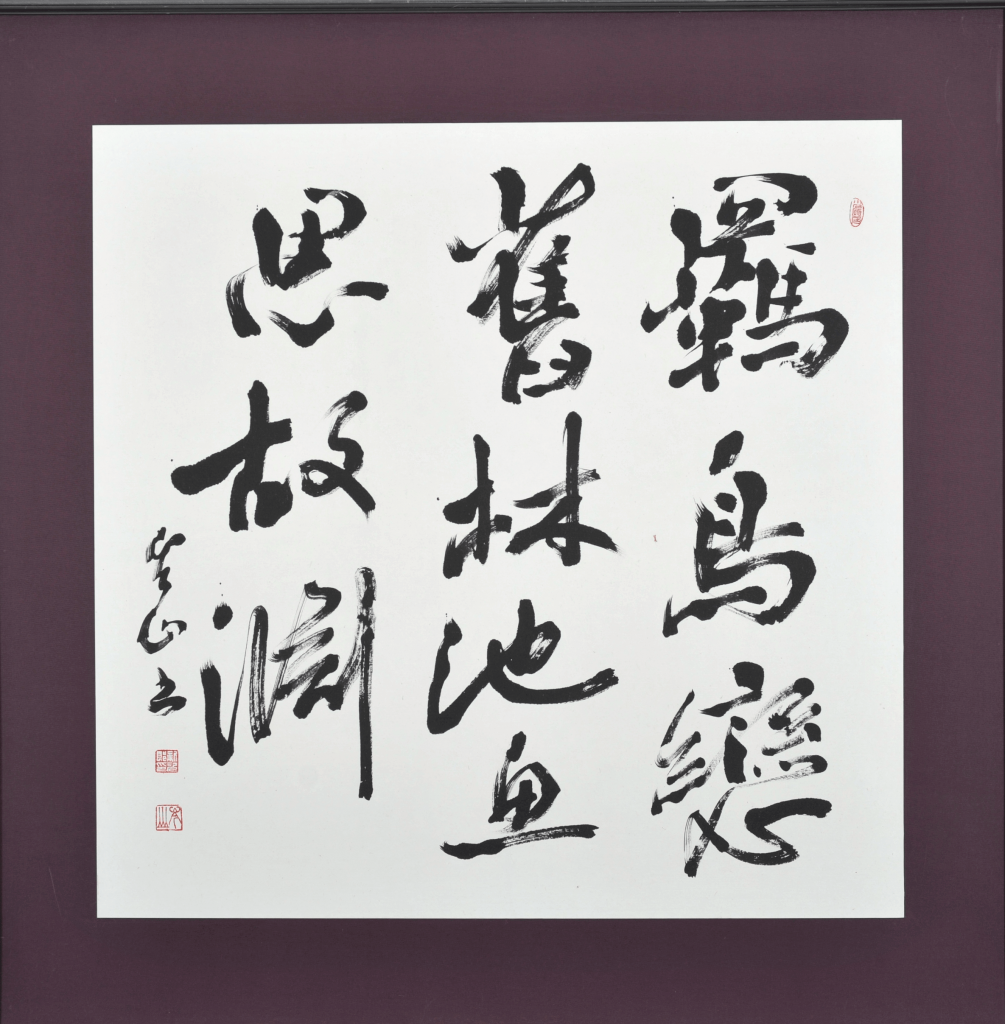 羈鳥戀
舊林池魚
思故淵
山书